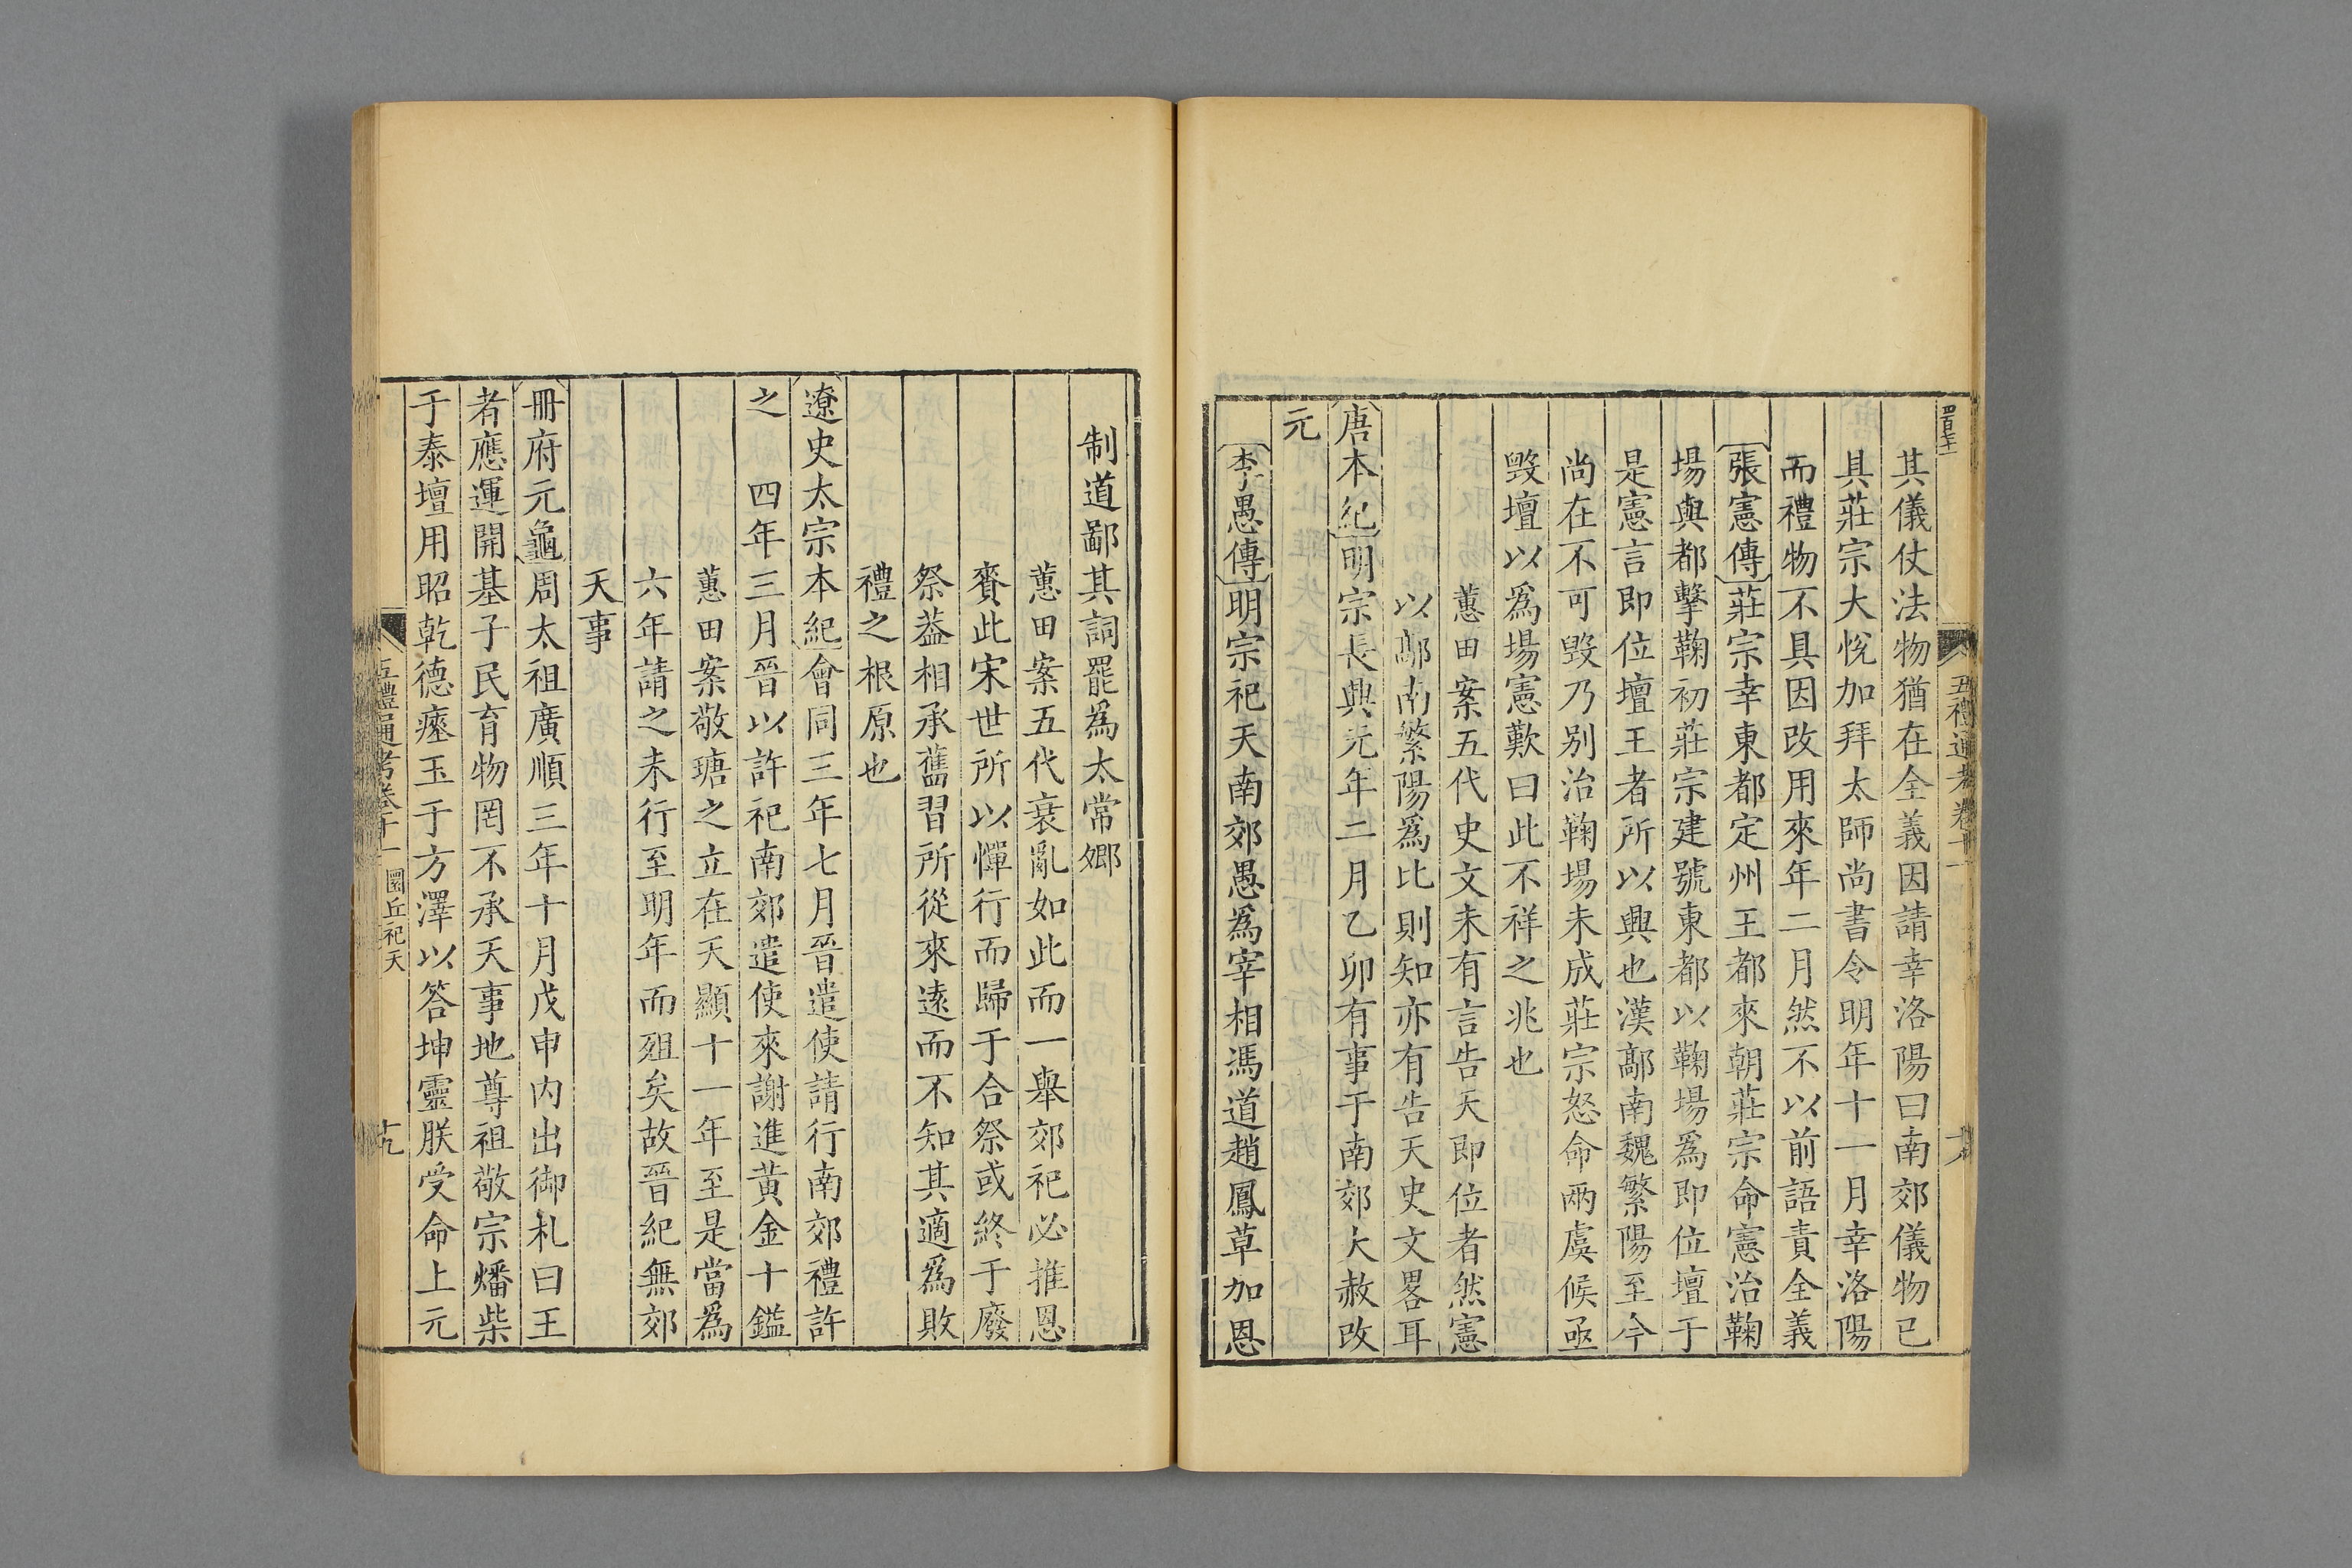 其儀仗法物猶在全義因請幸洛陽曰南郊儀物已
具莊宗大悅加拜太師尚書令明年十一月幸洛陽
而禮物不具因改用來年二月然不以前語責全義
張憲傳莊宗幸東都定州王都來朝莊宗命憲治鞠
場與都擊鞠初莊宗建號東都以鞠場爲即位壇于
是憲言即位壇王者所以興也漢鄗南魏繁陽至今
尚在不可毀乃別治鞠場未成莊宗怒命兩虞候亟
毀壇以爲場憲歎曰此不祥之兆也
蕙田案五代史文未有言告天即位者然憲
以鄗南繁陽爲比則知亦有告天史文畧耳
唐本紀明宗長興元年二月乙卯有事于南郊大赦改
元
李愚傳明宗祀天南郊愚爲宰相馮道趙鳳草加恩
五禮通考卷十一
六
制道鄙其詞罷爲太常卿
蕙田案五代衰亂如此而一舉郊祀必推恩
賚此宋世所以憚行而歸于合祭或終于廢
祭葢相承舊習所從來遠而不知其適爲敗
禮之根原也
遼史太宗本紀會同三年七月晉遣使請行南郊禮許
之　四年三月晉以許祀南郊遣使來謝進黃金十鎰
蕙田案敬瑭之立在天顯十一年至是當爲
六年請之未行至明年而殂矣故晉紀無郊
天事
冊府元龜周太祖廣順三年十月戊申内出御札曰王
者應運開基子民育物罔不承天事地尊祖敬宗燔柴
于泰壇用昭乾德瘞玉于方澤以答坤靈朕受命上元
五禮通考卷十一　圜丘祀天